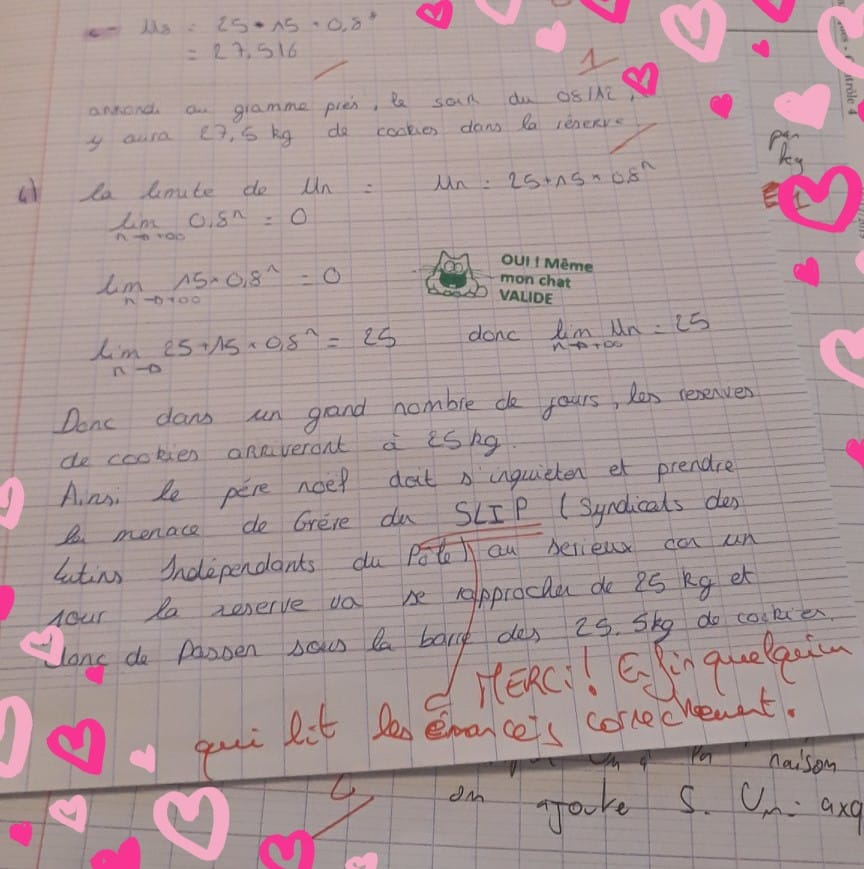 U8 = 25 + 15 × 0,8⁸
= 27,516
1
arrondi au gramme près, le soir du 08/12,
y aura 27,5 kg de cookies dans la réserve
par
kg
1
c) la limite de Un : Un = 25+15×0,8ⁿ
lim 0,8ⁿ = 0
n→+∞
lim 15×0,8ⁿ = 0
n→+∞
OUI ! Même
mon chat
VALIDE
lim 25+15×0,8ⁿ = 25 donc lim Un = 25
n→0 n→+∞
Donc dans un grand nombre de jours, les reserves
de cookies arriveront à 25kg.
Ainsi le père noël doit s'inquieter et prendre
la menace de Grève du SLIP (Syndicats des
Lutins Indépendants du Pôle) au serieux car un
jour la reserve va se rapprocher de 25 kg et
donc de passer sous la barre des 25.5kg de cookies.
MERCi! Enfin quelqu'un
qui lit les énoncés correctement.
raison
on ajoute 5. Un = axq
trôle 4